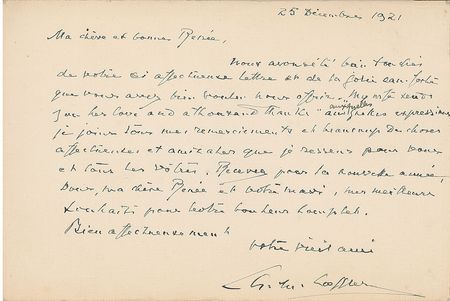 25 Décembre 1921
Ma chère et bonne Renée,
Nous avons été bien touchés
de votre si affectueuse lettre et de la jolie
que vous avez bien voulu nous offrir. My wife sends
you her love and a thousand thanks auxquelles expressions
je joins tous mes remerciements et beaucoup de choses
affectueuses et amicales que je ressens pour vous
et tous les vôtres. Recevez pour la nouvelle année,
vous, ma chère Renée et votre mari, mes meilleurs
souhaits pour votre bonheur complet.
Bien affectueusement
votre vieil ami
Ch. M. Loeffler